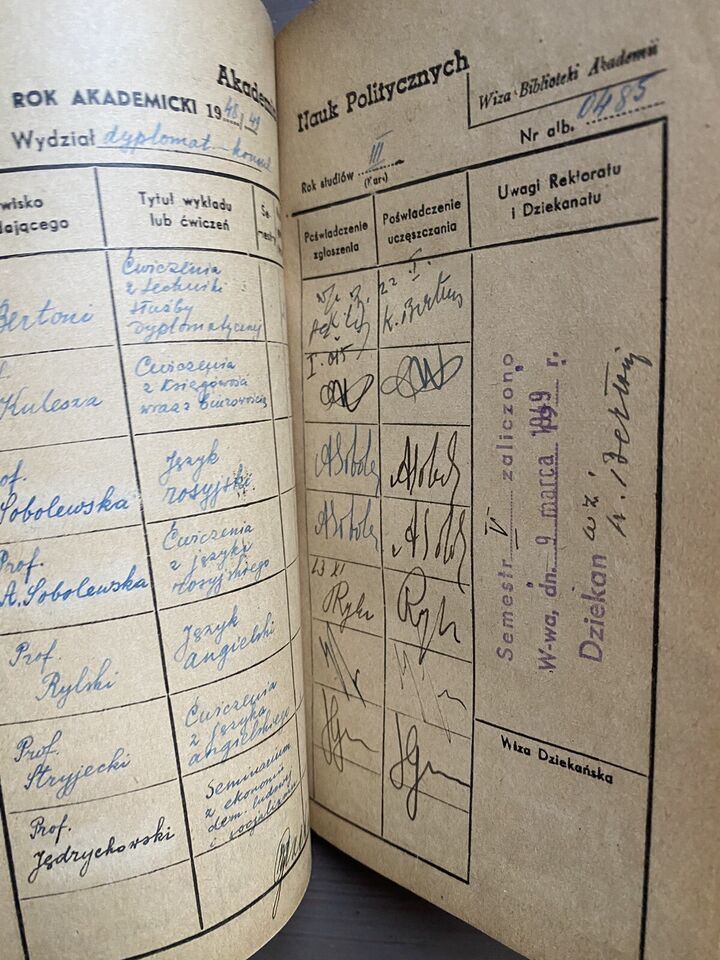 Akademi
ROK AKADEMICKI 1948/49
Wydział dyplomat-konsul
wisko
dającego
Tytuł wykładu
lub ćwiczeń
Se-
mestr
Bertoni
Ćwiczenia
z techniki
służby
dyplomatycznej
Kulesza
Ćwiczenia
z księgowości
wraz z biurowością
of.
Sobolewska
Język
rosyjski
Prof.
A. Sobolewska
Ćwiczenia
z języka
rosyjskiego
Prof.
Rylski
Język
angielski
Prof.
Stryjecki
Ćwiczenia
z języka
angielskiego
Prof.
Jędrychowski
Seminarium
z ekonomii
dem. ludowej
Nauk Politycznych
Wiza Biblioteki Akademii
Nr alb. 0485
Rok studiów III
(Kurs)
Poświadczenie
zgłoszenia
Poświadczenie
uczęszczania
Uwagi Rektoratu
i Dziekanatu
22
K. Bertoni
ASobol
ASobol
ASobol
ASobol
23 XI
Semestr V zaliczono
W-wa, dn. 9 marca 1949 r.
Dziekan wz
Wiza Dziekańska